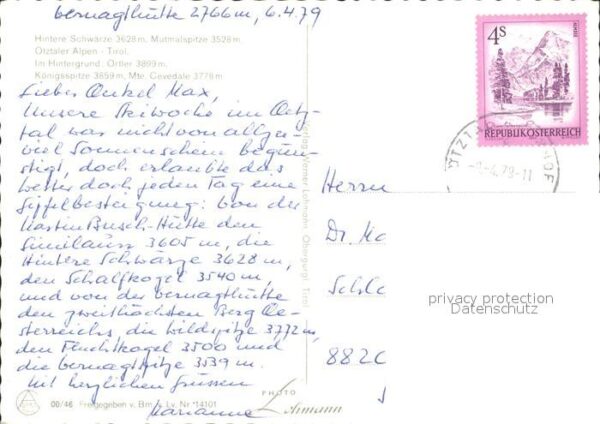 Vernagthütte 2766m, 6.4.79
Hintere Schwärze 3628 m, Mutmalspitze 3528 m,
Ötztaler Alpen - Tirol.
Im Hintergrund: Ortler 3899 m,
Königsspitze 3859 m, Mte. Cevedale 3778 m
Lieber Onkel Max,
Unsere Skiwoche im Oetz-
tal war nicht von allzu-
viel Sonnenschein begün-
stigt, doch erlaubte das
Wetter doch jeden Tag eine
Gipfelbesteigung: Von der
Martin Busch-Hütte den
Similaun 3605 m, die
Hintere Schwärze 3628 m,
den Schalfkogel 3540 m,
und von der Vernagthütte
den zweithöchsten Berg Oe-
sterreichs, die Wildspitze 3772 m,
den Fluchtkogel 3500 und
die Vernagtspitze 3539 m.
Mit herzlichen Grüssen
Marianne
00/46 Freigegeben v. Bm. f. Lv. Nr. 14101
PHOTO
Lohmann
Verlag Werner Lohmann, Obergurgl, Tirol
4S
REPUBLIK ÖSTERREICH
ÖTZTAL
4.79-11
HOF
Herrn
Dr. Ma
Schlo
8820
privacy protection
Datenschutz